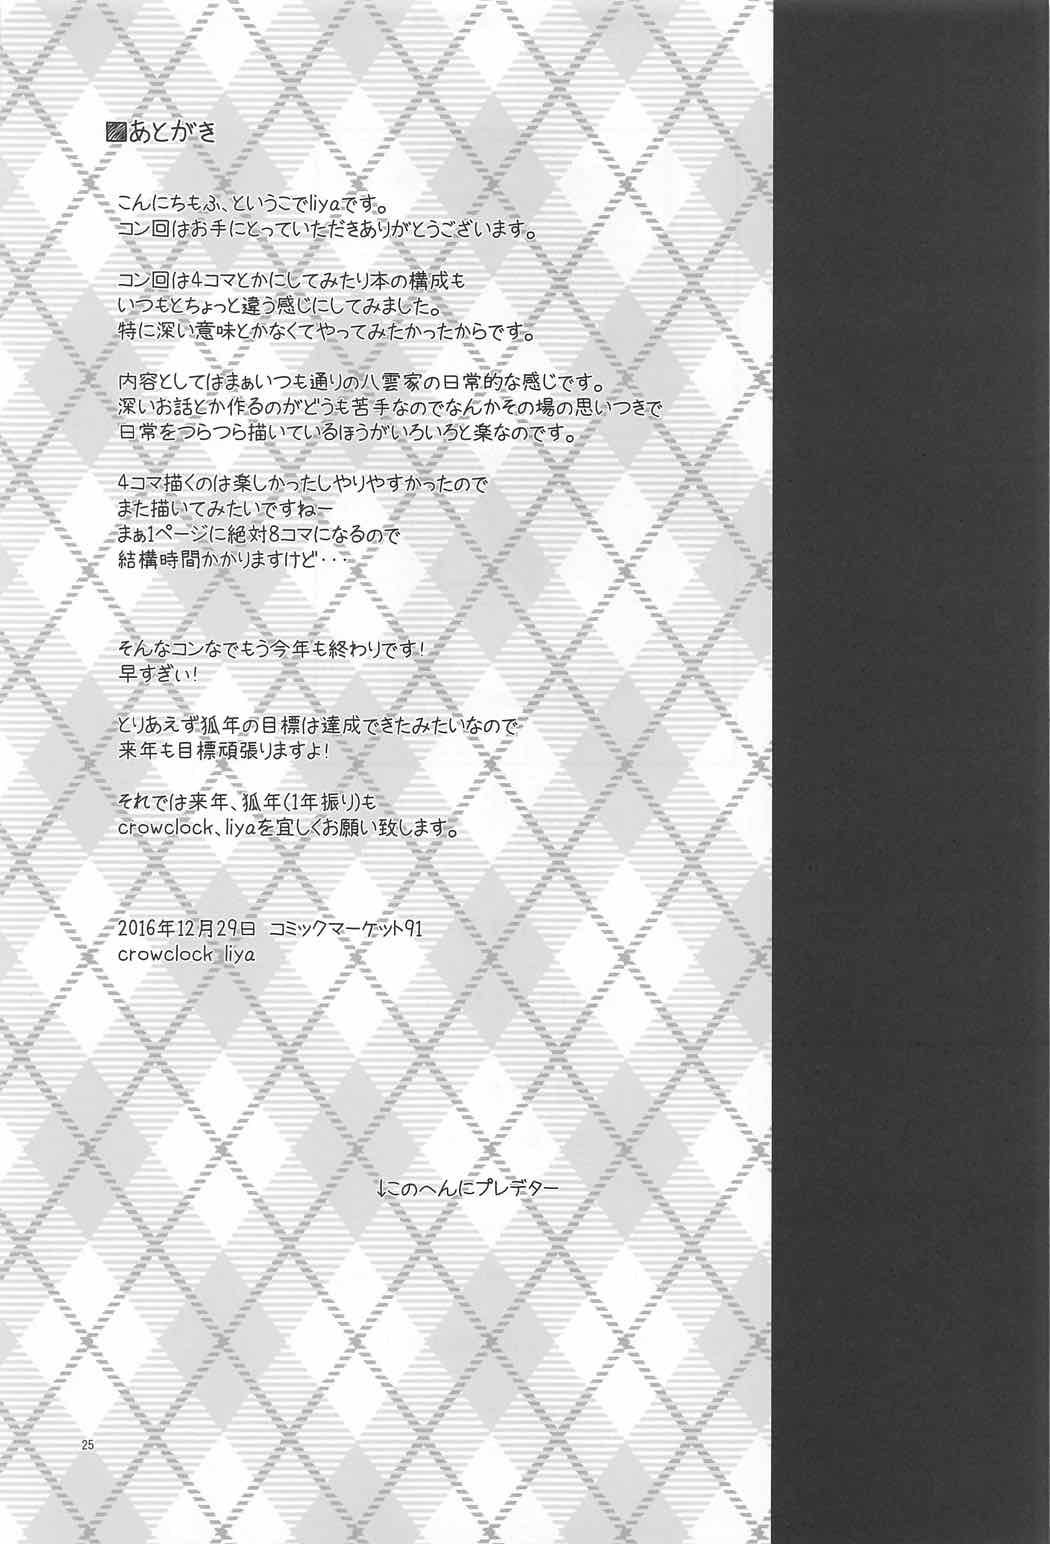 ■あとがき
こんにちもふ、というこでliyaです。
コン回はお手にとっていただきありがとうございます。
コン回は4コマとかにしてみたり本の構成も
いつもとちょっと違う感じにしてみました。
特に深い意味とかなくてやってみたかったからです。
内容としてはまぁいつも通りの八雲家の日常的な感じです。
深いお話とか作るのがどうも苦手なのでなんかその場の思いつきで
日常をつらつら描いているほうがいろいろと楽なのです。
4コマ描くのは楽しかったしやりやすかったので
また描いてみたいですねー
まぁ1ページに絶対8コマになるので
結構時間かかりますけど・・・
そんなコンなでもう今年も終わりです!
早すぎぃ!
とりあえず狐年の目標は達成できたみたいなので
来年も目標頑張りますよ!
それでは来年、狐年(1年振り)も
crowclock、liyaを宜しくお願い致します。
2016年12月29日 コミックマーケット91
crowclock liya
↓このへんにプレデター
25